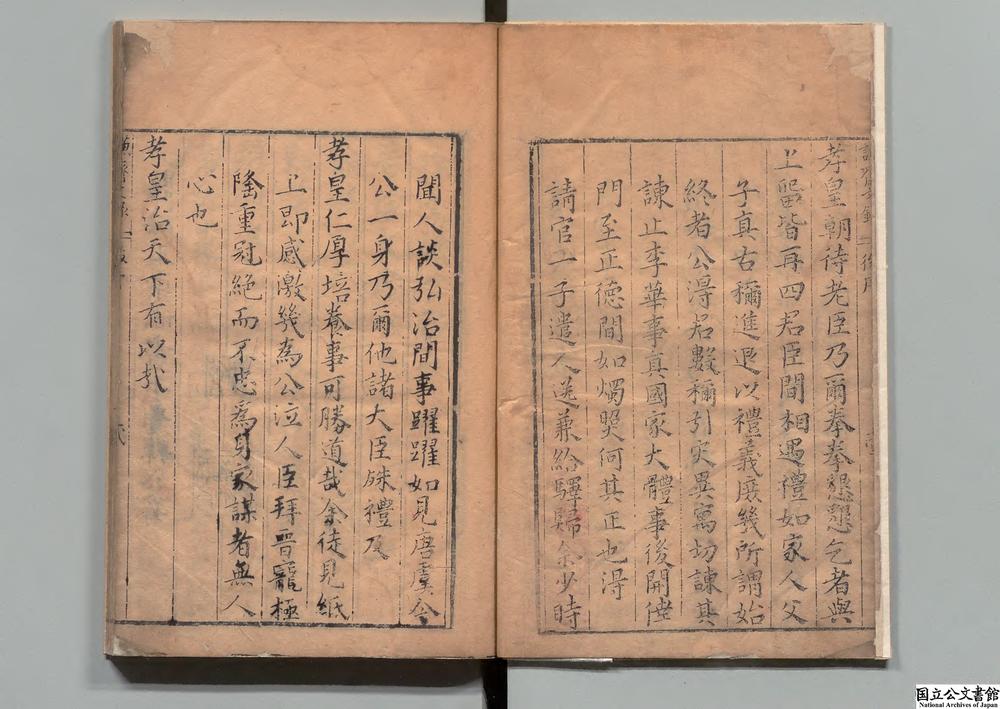 孝皇朝待老臣乃爾拳拳懇懇乞者與
上畱皆再四君臣間相遇禮如家人父
子真古稱進退以禮義庶幾所謂始
終者公淂君數稱引灾異寓切諌其
諌止李華事真國家大體事後開倖
門至正德間如燭㷼何其正也淂
請官一子遣人送兼給驛歸余少時
聞人談弘治間事躍躍如見唐虞今
公一身乃爾他諸大臣殊禮及
孝皇仁厚培養事可勝道哉余徒見紙
上即感激幾為公泣人臣拜晋寵極
隆重冠絶而不忠爲身家謀者無人
心也
孝皇治天下有以哉
国立公文書館
National Archives of Japan